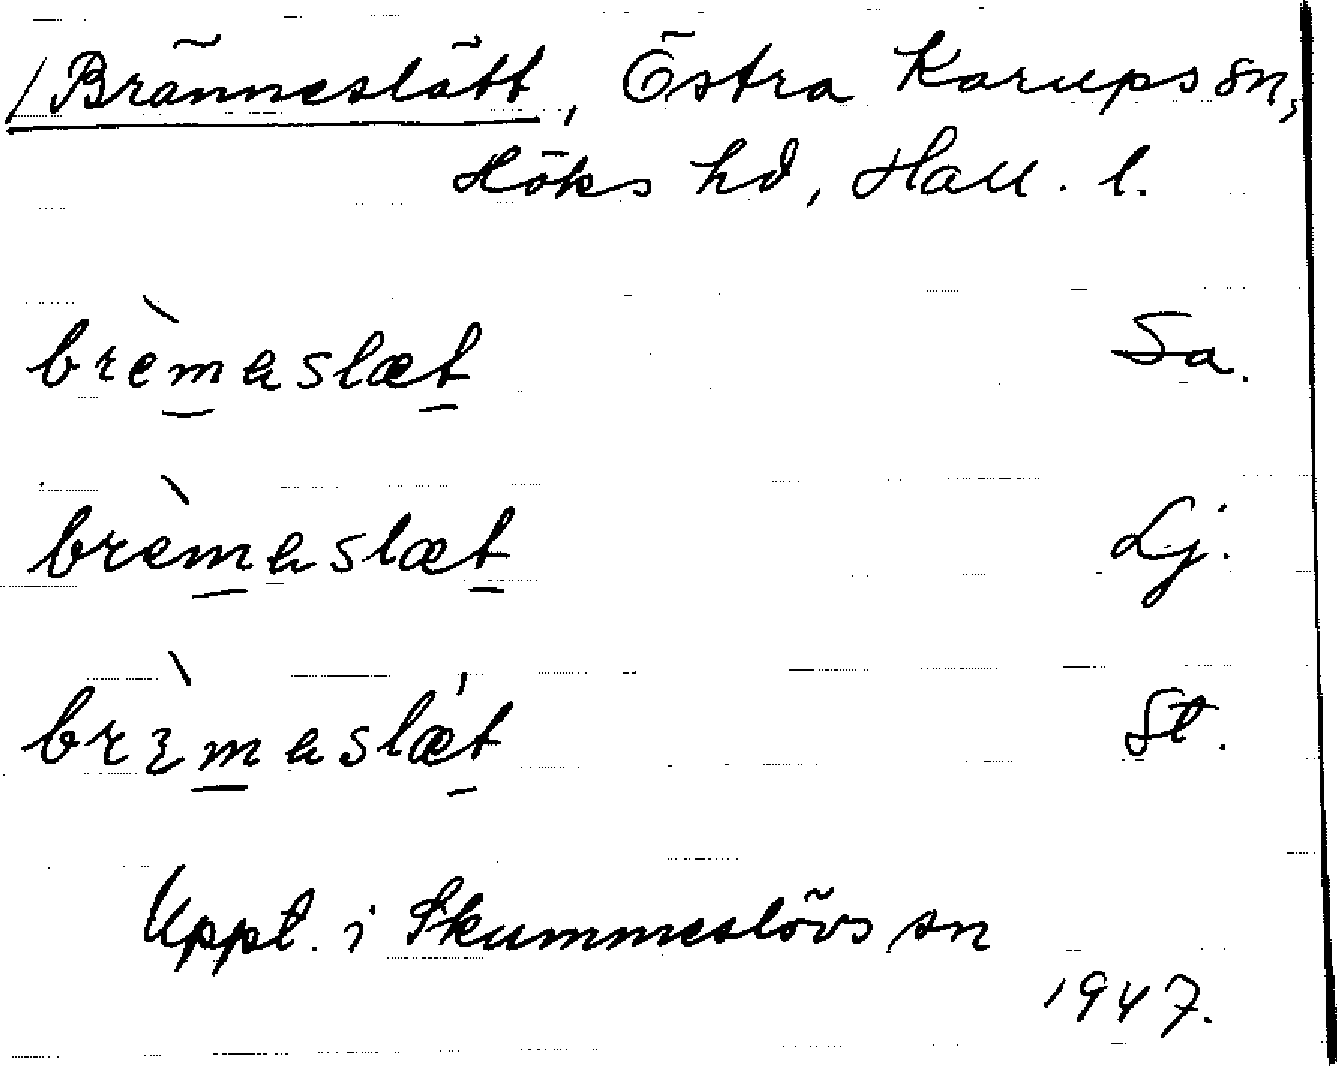 /Bränneslätt, Östra Karups sn,
Höks hd, Hall. l.
brèmaslæt Sa.
brèmaslæt Lj.
brèmaslǽt St.
Uppt. i Skummeslövs sn
1947.